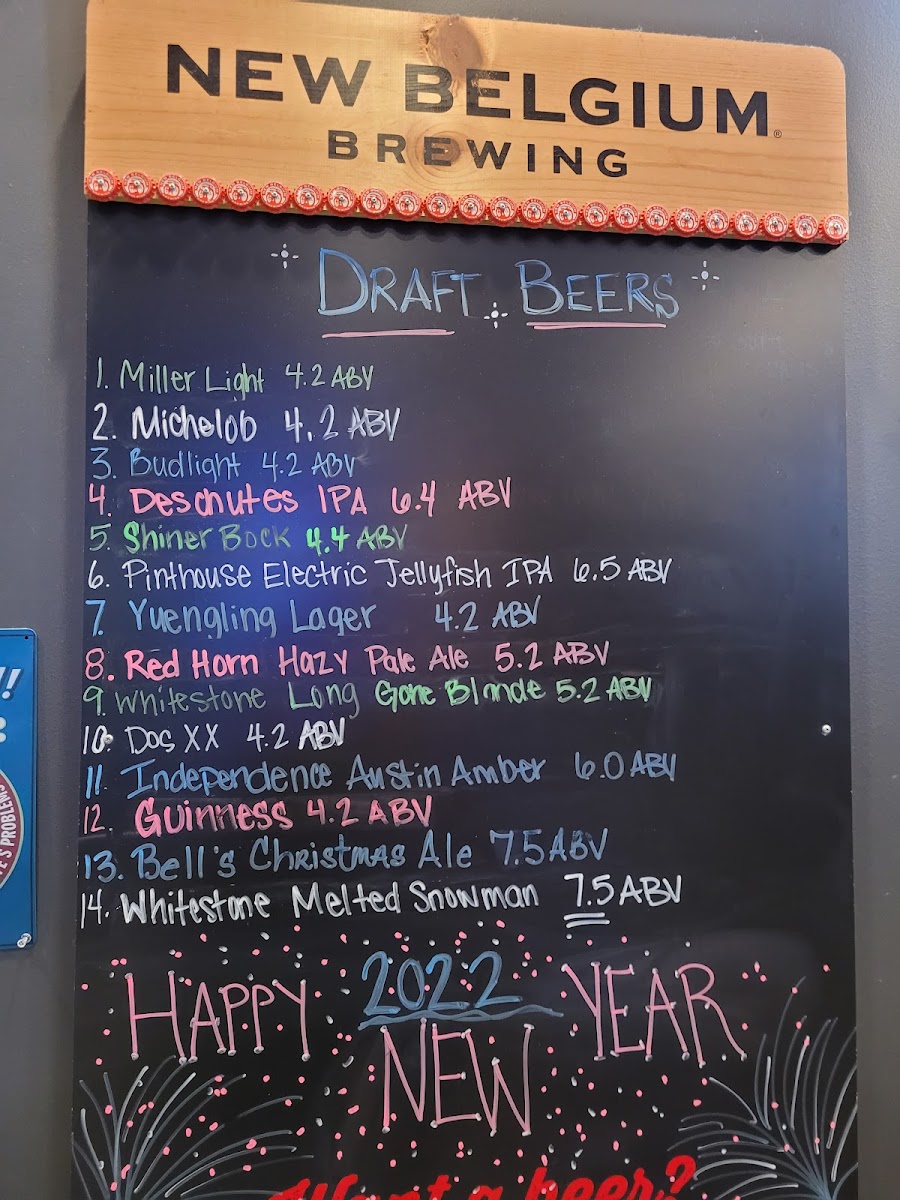 NEW BELGIUM®
BREWING
DRAFT BEERS
1. Miller Light 4.2 ABV
2. Michelob 4.2 ABV
3. Budlight 4.2 ABV
4. Deschutes IPA 6.4 ABV
5. Shiner Bock 4.4 ABV
6. Pinthouse Electric Jellyfish IPA 6.5 ABV
7. Yuengling Lager 4.2 ABV
8. Red Horn Hazy Pale Ale 5.2 ABV
9. Whitestone Long Gone Blonde 5.2 ABV
10. Dos XX 4.2 ABV
11. Independence Austin Amber 6.0 ABV
12. Guinness 4.2 ABV
13. Bell's Christmas Ale 7.5 ABV
14. Whitestone Melted Snowman 7.5 ABV
HAPPY 2022 YEAR
NEW
Want a beer?
!!
E'S PROBLEMS